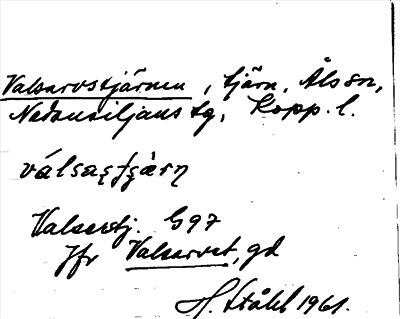 Valsarvstjärnen, tjärn, Åls sn,
Nedansiljans tg, Kopp. l.
Valsarvtj. G97
Jfr Valsarvet, gd
H. Ståhl 1961.